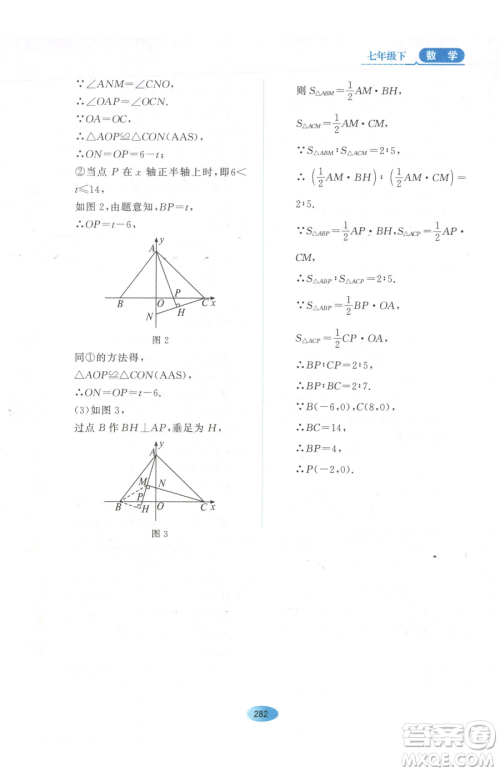 七年级下 数学
∵∠ANM=∠CNO,
∴∠OAP=∠OCN.
∵OA=OC,
∴△AOP≌△CON(AAS),
∴ON=OP=6-t;
②当点P在x轴正半轴上时,即6<
t≤14,
如图2,由题意知,BP=t,
∴OP=t-6,
y
A
B
O
P
C
x
N
H
图2
同①的方法得,
△AOP≌△CON(AAS),
∴ON=OP=t-6.
(3)如图3,
过点B作BH⊥AP,垂足为H,
y
A
M
N
B
P
H
O
C
x
图3
则S△ABM=1/2AM·BH,
S△ACM=1/2AM·CM,
∵S△ABM∶S△ACM=2∶5,
∴(1/2AM·BH)∶(1/2AM·CM)=
2∶5.
∵S△ABP=1/2AP·BH,S△ACP=1/2AP·CM,
∴S△ABP∶S△ACP=2∶5,
∵S△ABP=1/2BP·OA,
S△ACP=1/2CP·OA,
∴BP∶CP=2∶5,
∵B(-6,0),C(8,0),
∴BC=14,
∴BP=4,
∴P(-2,0).
282
MXQE.COM